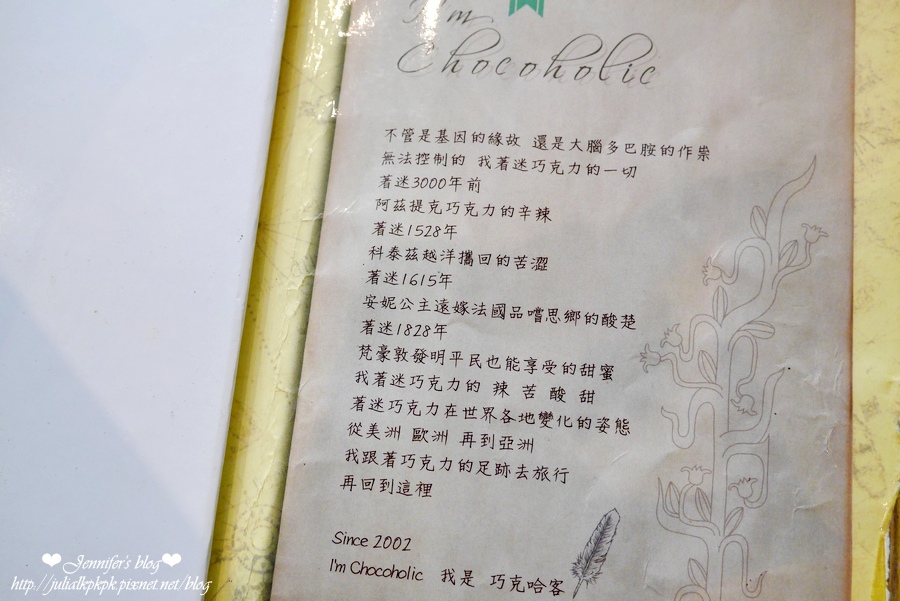 I'm
Chocoholic
不管是基因的緣故 還是大腦多巴胺的作祟
無法控制的 我著迷巧克力的一切
著迷3000年前
阿茲提克巧克力的辛辣
著迷1528年
科泰茲越洋攜回的苦澀
著迷1615年
安妮公主遠嫁法國品嚐思鄉的酸楚
著迷1828年
梵豪敦發明平民也能享受的甜蜜
我著迷巧克力的 辣 苦 酸 甜
著迷巧克力在世界各地變化的姿態
從美洲 歐洲 再到亞洲
我跟著巧克力的足跡去旅行
再回到這裡
Since 2002
I'm Chocoholic 我是 巧克哈客
Jennifer's blog
http://julialkpkpk.pixnet.net/blog